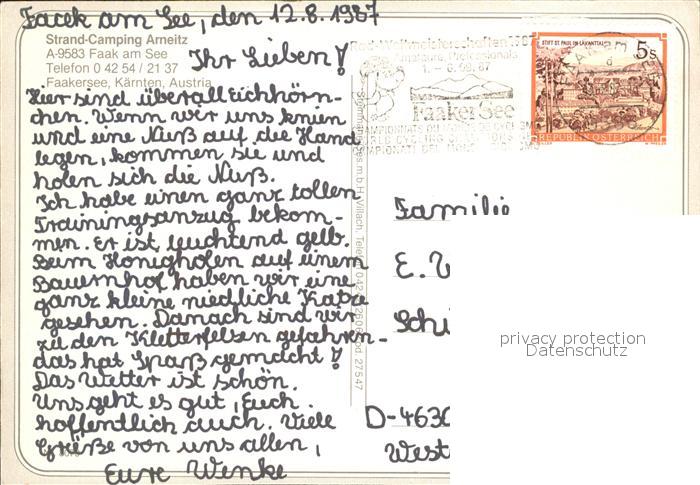 Facek am See, den 12.8.1987
Strand-Camping Arneitz
A-9583 Faak am See
Telefon 0 42 54 / 21 37
Faakersee, Kärnten, Austria
Ihr Lieben!
Hier sind überall Eichhörn-
chen. Wenn wir uns knien
und eine Nuß auf die Hand
legen, kommen sie und
holen sich die Nuß.
Ich habe einen ganz tollen
Trainingsanzug bekom-
men. Er ist leuchtend gelb.
Beim Honigholen auf einem
Bauernhof haben wir eine
ganz kleine niedliche Katze
gesehen. Danach sind wir
zu den Kletterfelsen gefahren-
das hat Spaß gemacht!
Das Wetter ist schön.
Uns geht es gut, Euch
hoffentlich auch. Viele
Grüße von uns allen,
Eure Wenke
Rad-Weltmeisterschaften 1987
Amateure, Professionals
1. - 6.09.87
Faaker See
STIFT ST. PAUL IM LAVANTTAL
5 S
REPUBLIK ÖSTERREICH
Familie
E. W
Schi
D-4630
West
privacy protection
Datenschutz